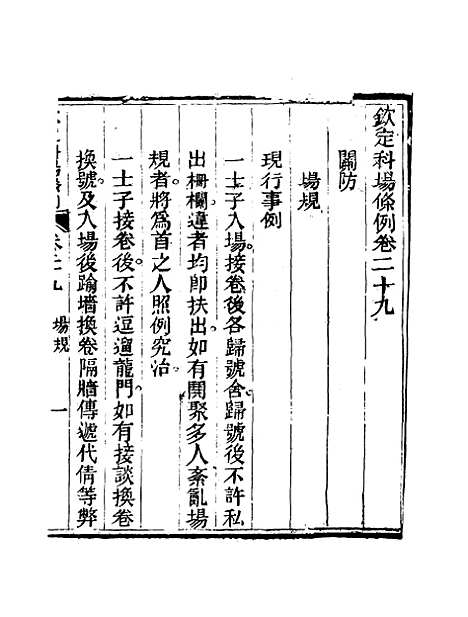 欽定科場條例卷二十九
關防
場規
現行事例
一士子入場接卷後各歸號舍歸號後不許私
出柵欄違者均卽扶出如有鬨聚多人紊亂場
規者將爲首之人照例究治
一士子接卷後不許逗遛龍門如有接談換卷
換號及入場後踰墻換卷隔牆傳遞代倩等弊
卷二十九 場規 一